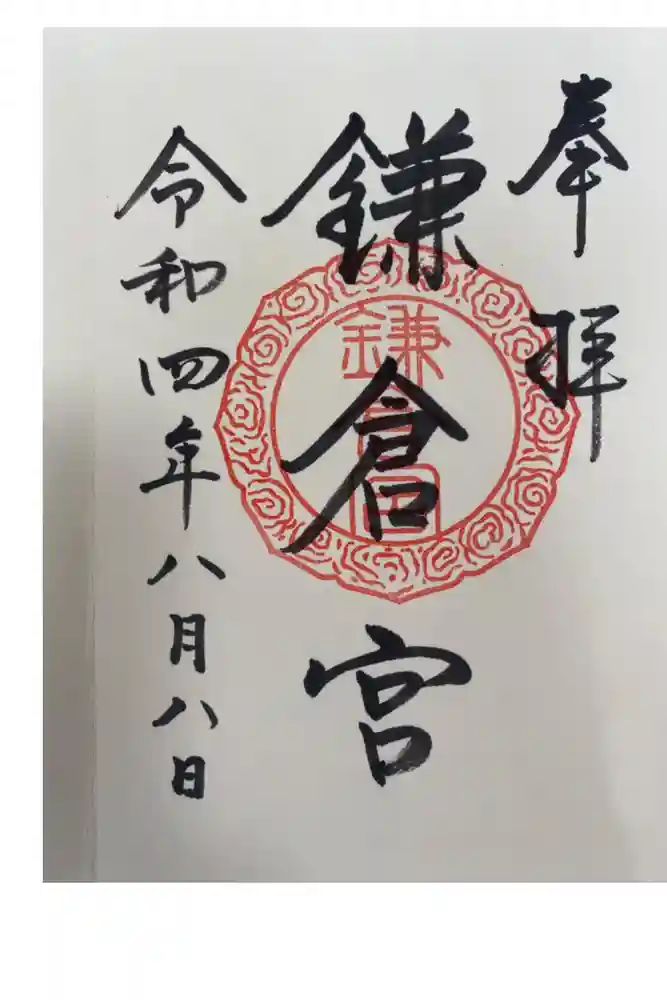 奉拝
鎌倉宮
令和四年八月八日